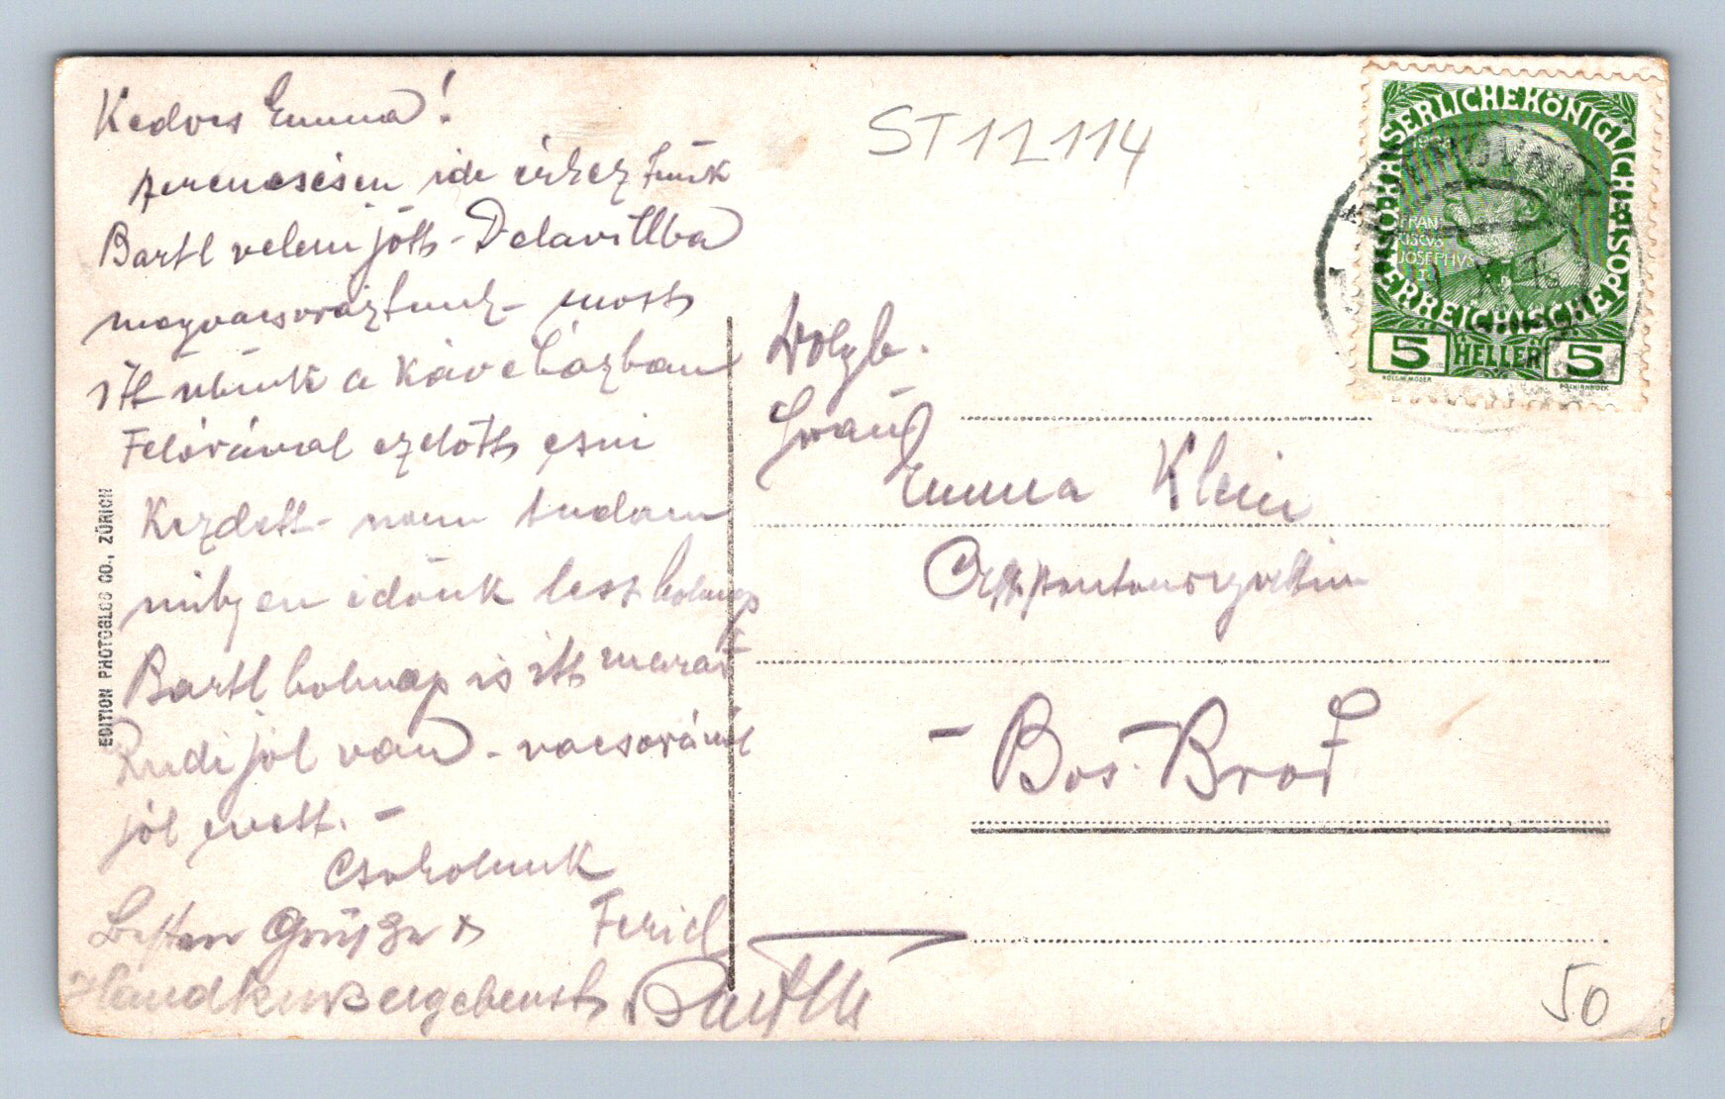 Kedves Emma!
szerencsésen ide érkeztünk
Bartl velem jött - Delavillba
megvacsoráztunk - most
itt ülünk a Kávéházban
Félórával ezelőtt esni
Kezdett - nem tudom
milyen időnk lesz holnap
Bartl holnap is itt marad
Rudi jól van - vacsoránál
jól evett. -
Csókolunk
Besten Grüße &
Ferid
Handkuss ergebenst Bartl
EDITION PHOTOGLOB CO., ZÜRICH
ST 12114
KAISERLICHEKÖNIGLICHE ÖSTERREICHISCHE POST
1908
FRAN
CISCVS
JOSEPHVS
I.
5 HELLER 5
Wolgb.
Frau
Emma Klein
- Bos. Brod
50